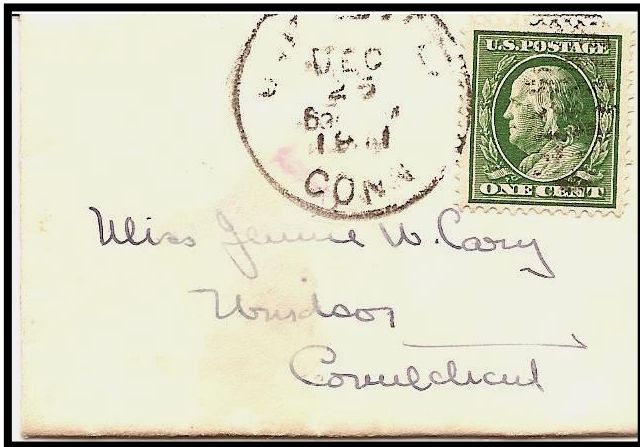 DEC
25
CONN
U.S. POSTAGE
ONE CENT
Miss Jennie W. Cary
Windsor
Connecticut